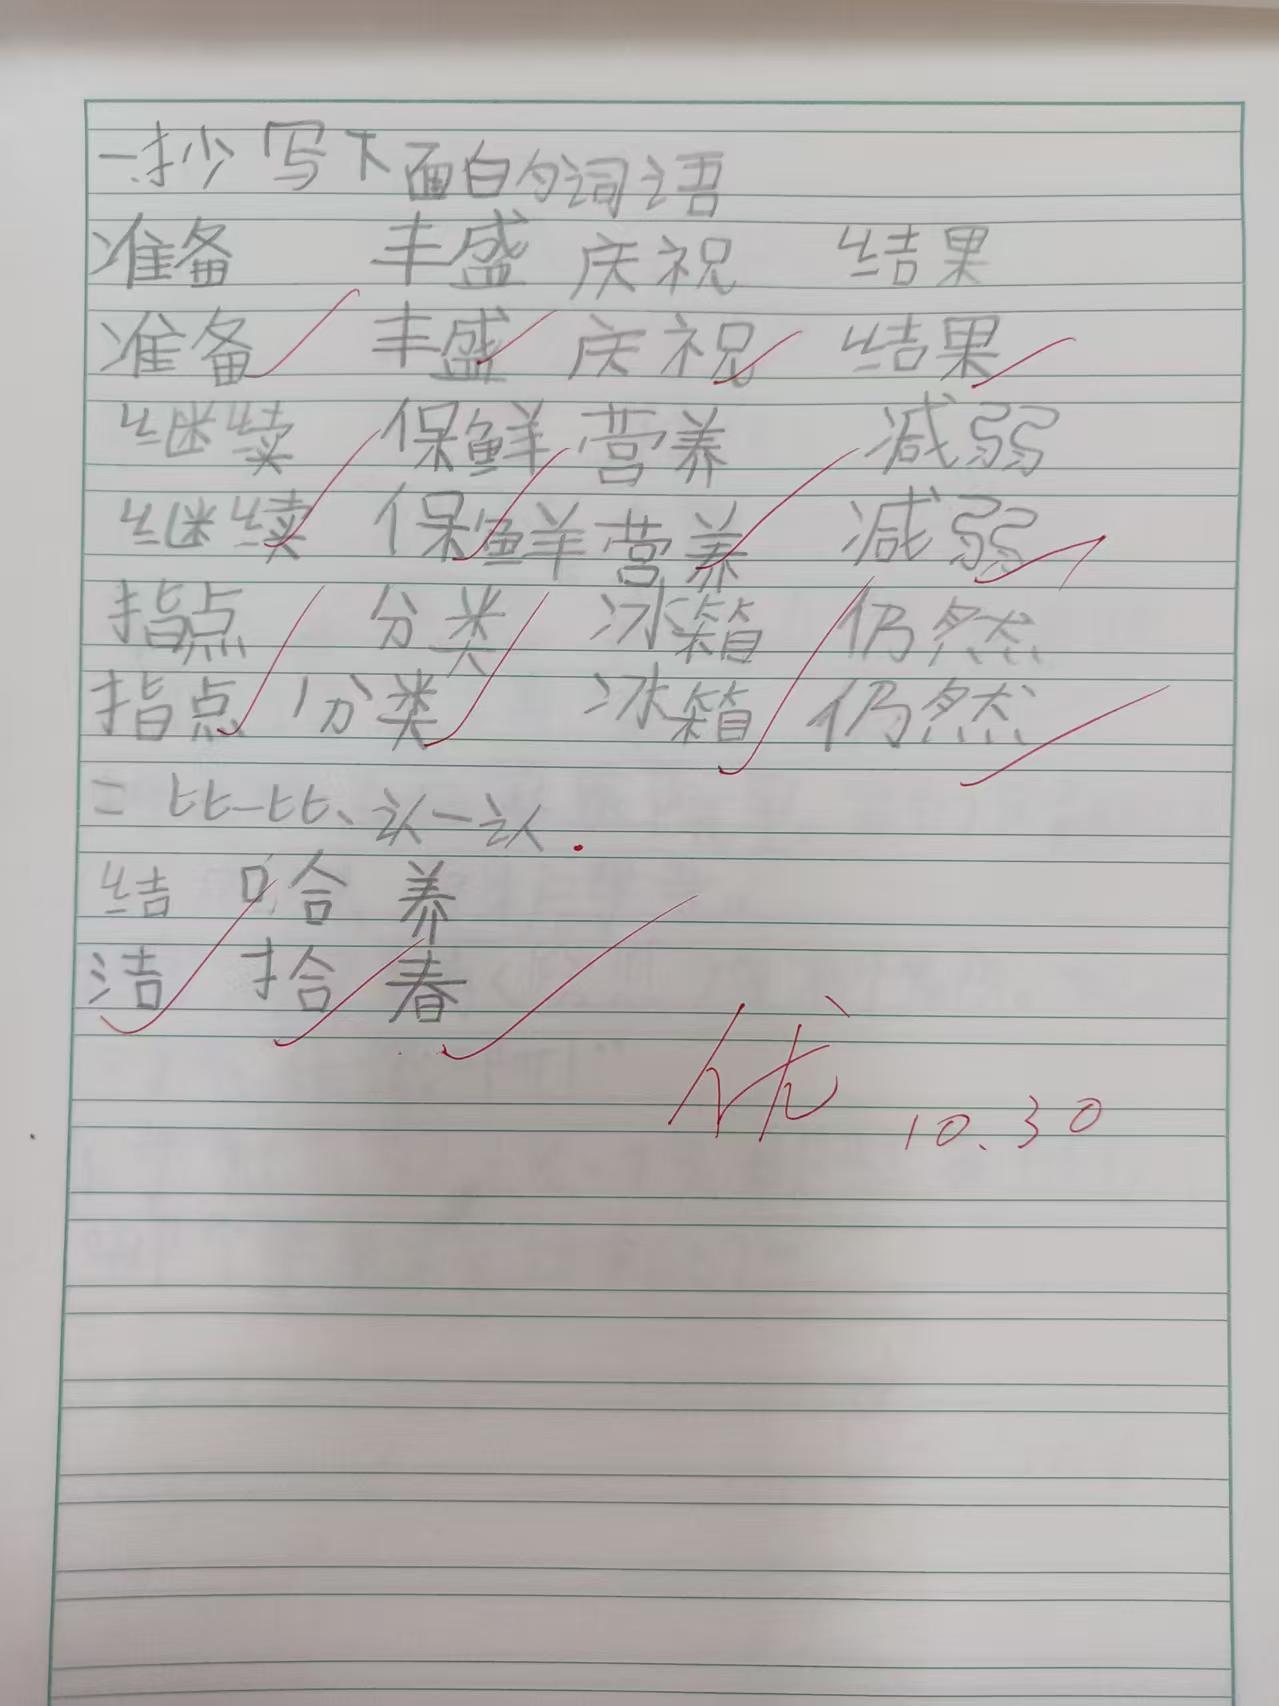 一.抄写下面的词语
准备 丰盛 庆祝 结果
准备 丰盛 庆祝 结果
继续 保鲜 营养 减弱
继续 保鲜 营养 减弱
指点 分类 冰箱 仍然
指点 分类 冰箱 仍然
二 比一比、认一认.
结 哈 养
洁 拾 春
优 10.30